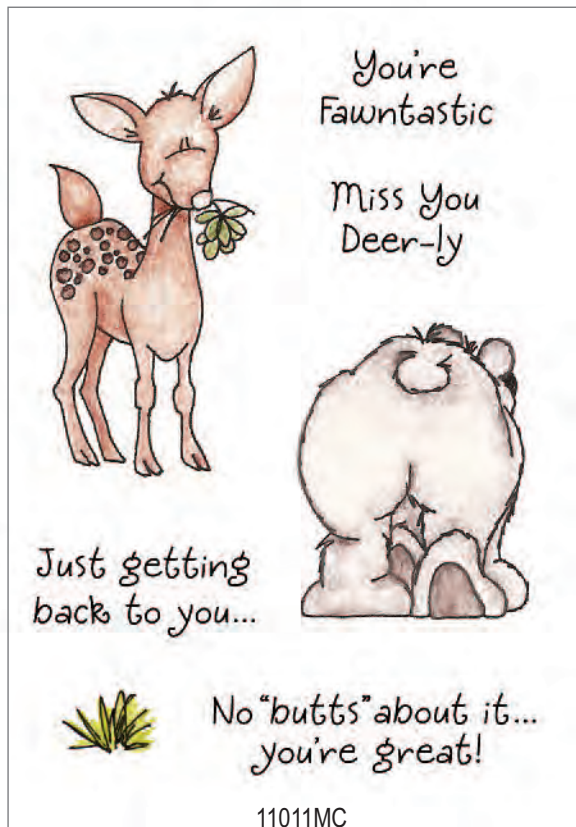 You're
Fawntastic
Miss You
Deer-ly
Just getting
back to you...
No "butts" about it...
you're great!
11011MC